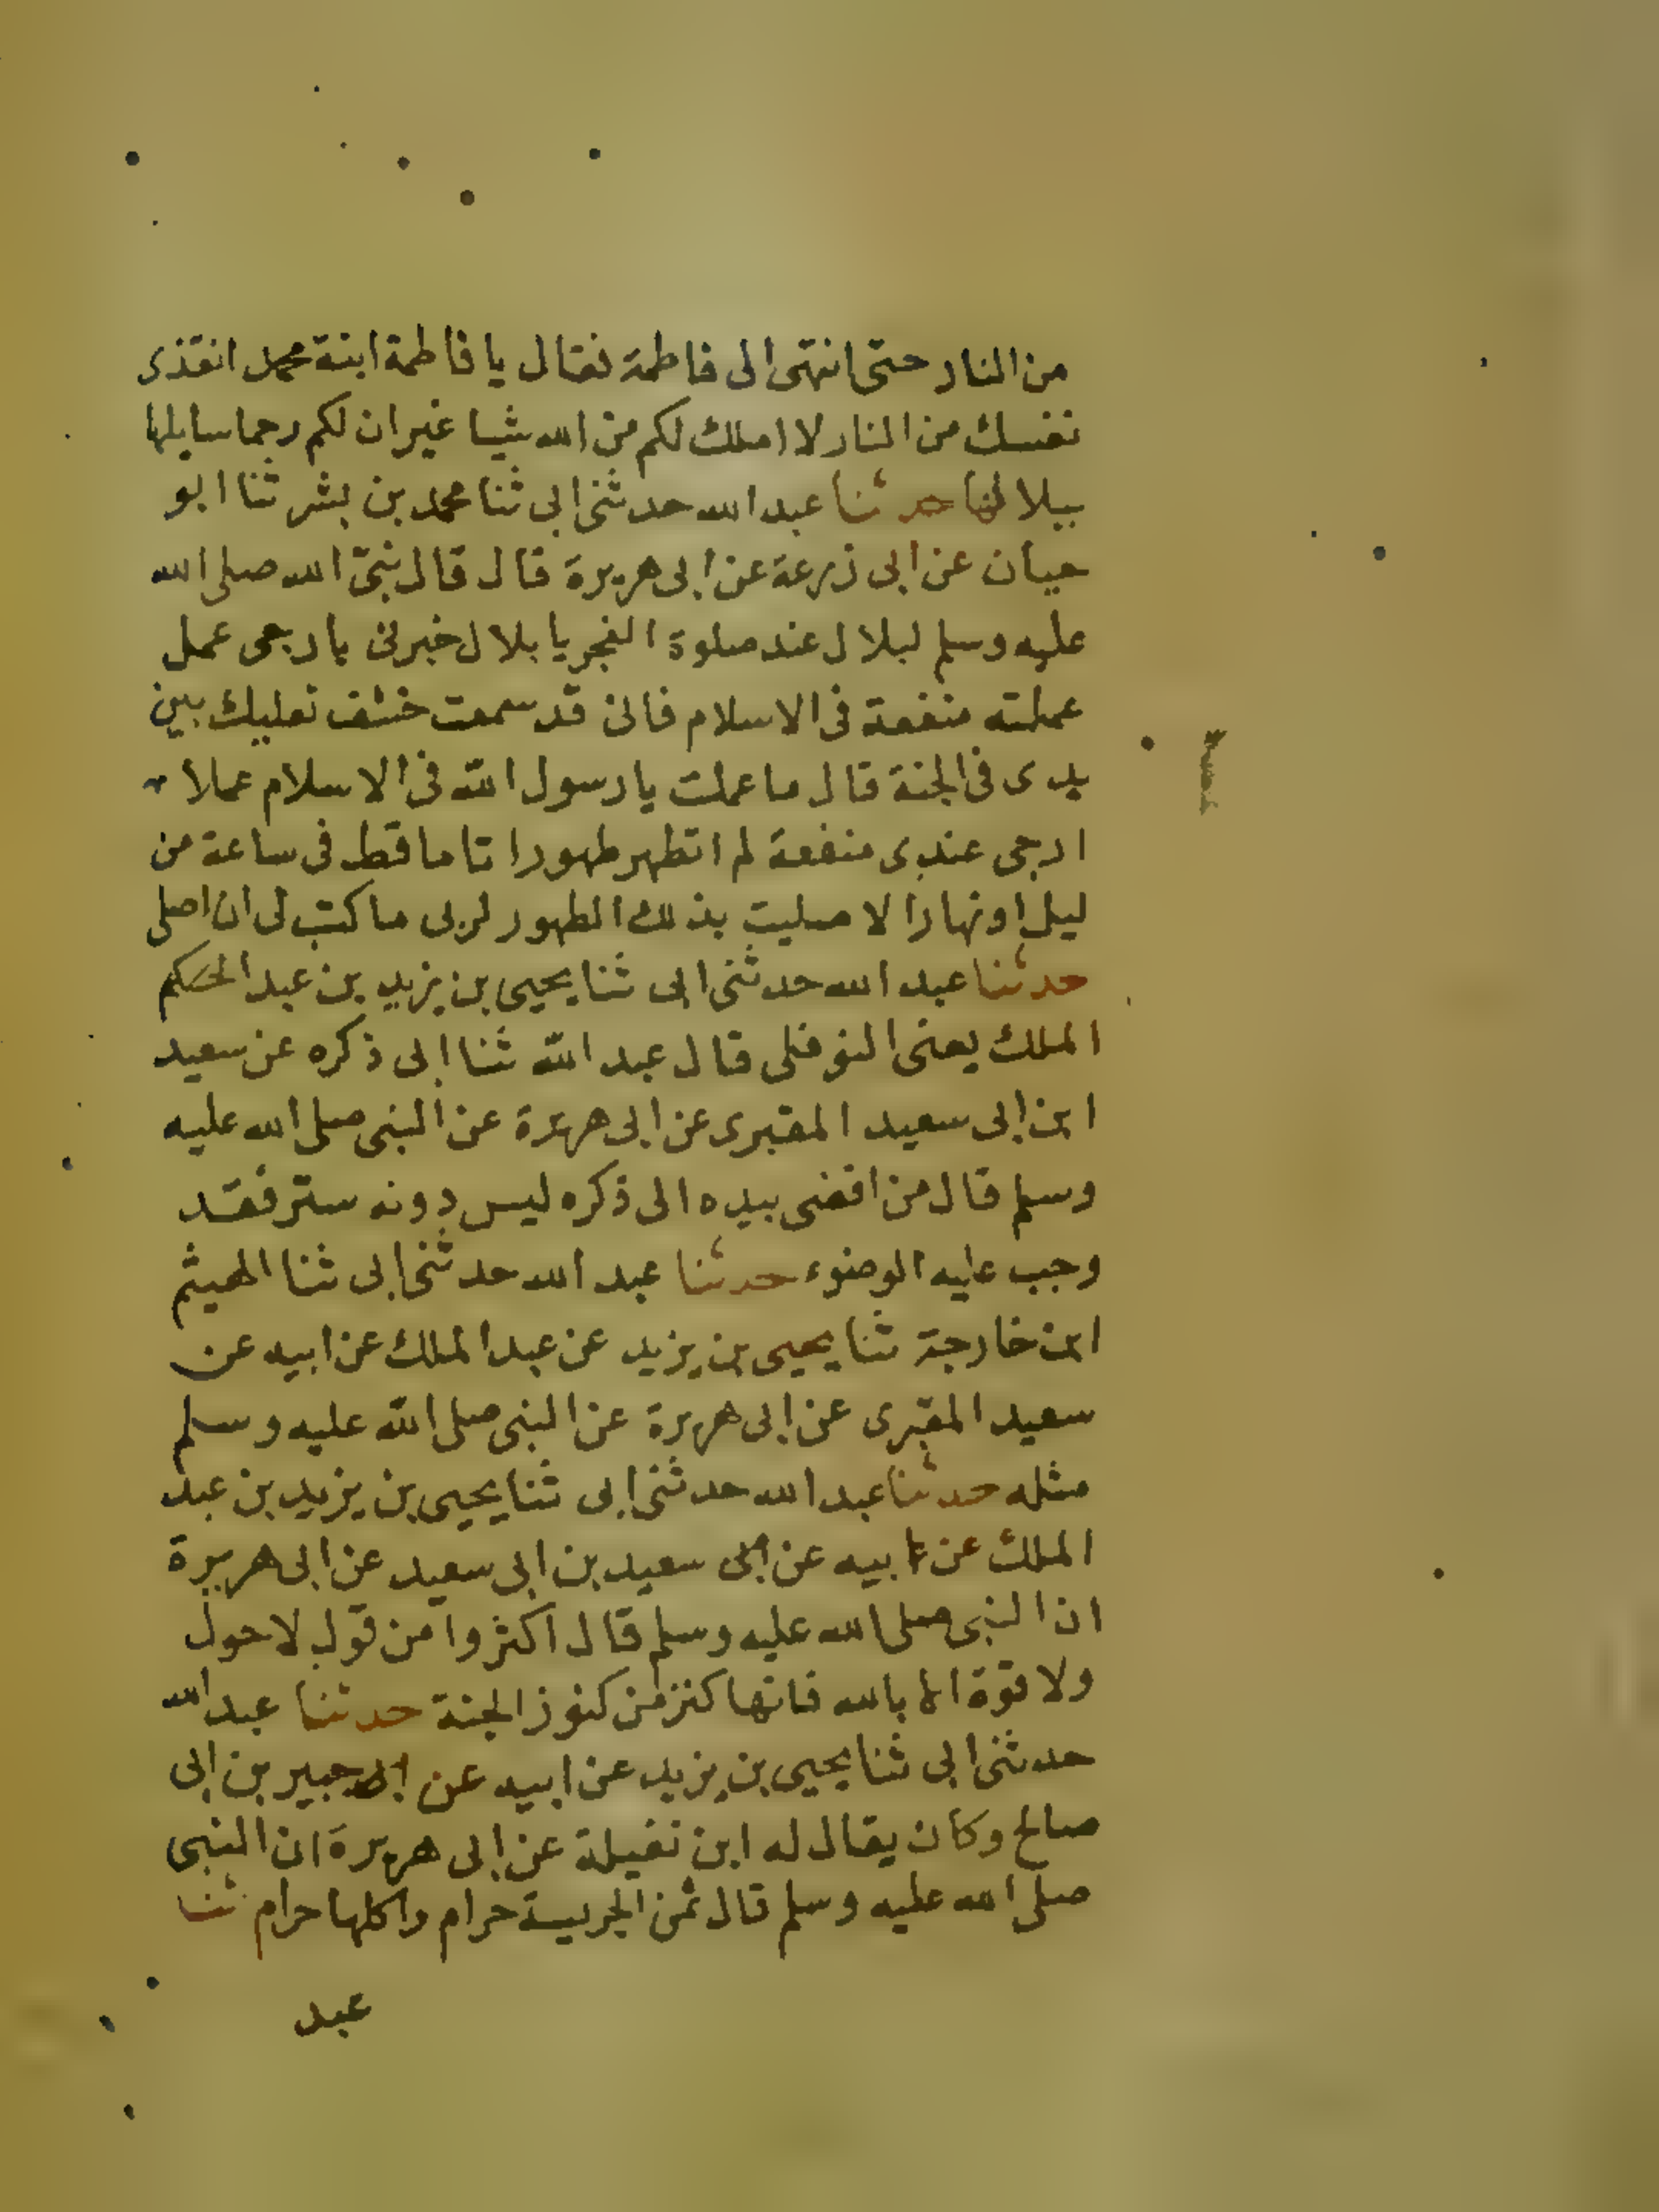 من النار حتى انتهى الى فاطمة فقال يا فاطمة ابنة محمد انقذى
نفسك من النار لا املك لكم من الله شيا غير ان لكم رحما سابلها
ببلالها حدثنا عبد الله حدثنى ابى ثنا محمد بن بشر ثنا ابو
حيان عن ابى زرعة عن ابى هريرة قال قال نبى الله صلى الله
عليه وسلم لبلال عند صلوة الفجر يا بلال خبرنى بارجى عمل
عملته منفعة فى الاسلام فانى قد سمعت خشف نعليك بين
يدى فى الجنة قال ما عملت يا رسول الله فى الاسلام عملا
ارجى عندى منفعة لم اتطهر طهورا تاما قط فى ساعة من
ليل او نهار الا صليت بذلك الطهور لربى ما كتب لى ان اصلى
حدثنا عبد الله حدثنى ابى ثنا يحيى بن يزيد بن عبد الحكم
الملك يعنى النوفلى قال عبد الله ثنا ابى ذكره عن سعيد
ابن ابى سعيد المقبرى عن ابى هريرة عن النبى صلى الله عليه
وسلم قال من افضى بيده الى ذكره ليس دونه ستر فقد
وجب عليه الوضوء حدثنا عبد الله حدثنى ابى ثنا الهيثم
ابن خارجة ثنا يحيى بن يزيد عن عبد الملك عن ابيه عن
سعيد المقبرى عن ابى هريرة عن النبى صلى الله عليه وسلم
مثله حدثنا عبد الله حدثنى ابى ثنا يحيى بن يزيد بن عبد
الملك عن ابيه عن ابى سعيد بن ابى سعيد عن ابى هريرة
ان النبى صلى الله عليه وسلم قال اكثروا من قول لا حول
ولا قوة الا بالله فانها كنز من كنوز الجنة حدثنا عبد الله
حدثنى ابى ثنا يحيى بن يزيد عن ابيه عن جبير بن ابى
صالح وكان يقال له ابن نفيلة عن ابى هريرة ان النبى
صلى الله عليه وسلم قال ثمن الحريسة حرام واكلها حرام ثنا
عبد